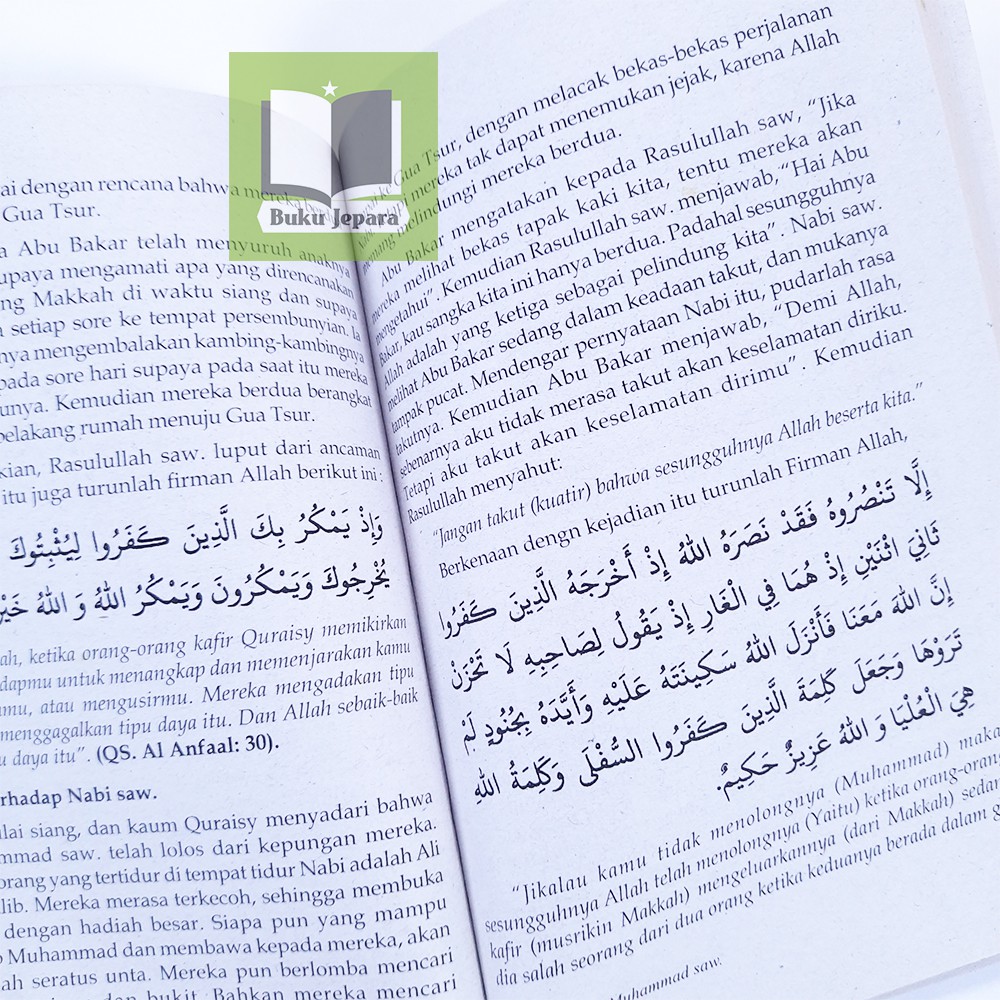 ai dengan rencana bahwa mereka
Gua Tsur.
Abu Bakar telah menyuruh anaknya
upaya mengamati apa yang direncanakan
ng Makkah di waktu siang dan supaya
setiap sore ke tempat persembunyian. Ia
nya mengembalakan kambing-kambingnya
pada sore hari supaya pada saat itu mereka
unya. Kemudian mereka berdua berangkat
elakang rumah menuju Gua Tsur.
kian, Rasulullah saw. luput dari ancaman
itu juga turunlah firman Allah berikut ini :
وَإِذْ يَمْكُرُ بِكَ الَّذِينَ كَفَرُوا لِيُثْبِتُوكَ
يُخْرِجُوكَ وَيَمْكُرُونَ وَيَمْكُرُ اللهُ وَ اللهُ خَيْرُ
ah, ketika orang-orang kafir Quraisy memikirkan
dapmu untuk menangkap dan memenjarakan kamu
amu, atau mengusirmu. Mereka mengadakan tipu
menggagalkan tipu daya itu. Dan Allah sebaik-baik
u daya itu". (QS. Al Anfaal: 30).
rhadap Nabi saw.
lai siang, dan kaum Quraisy menyadari bahwa
mmad saw. telah lolos dari kepungan mereka.
orang yang tertidur di tempat tidur Nabi adalah Ali
lib. Mereka merasa terkecoh, sehingga membuka
dengan hadiah besar. Siapa pun yang mampu
p Muhammad dan membawa kepada mereka, akan
ah seratus unta. Mereka pun berlomba mencari
dan bukit. Bahkan mereka mencari
Buku Jepara
ke Gua Tsur, dengan melacak bekas-bekas perjalanan
Nabi, tapi mereka tak dapat menemukan jejak, karena Allah
memang melindungi mereka berdua.
Abu Bakar mengatakan kepada Rasulullah saw, "Jika
mereka melihat bekas tapak kaki kita, tentu mereka akan
mengetahui". Kemudian Rasulullah saw. menjawab, "Hai Abu
Bakar, kau sangka kita ini hanya berdua. Padahal sesungguhnya
Allah adalah yang ketiga sebagai pelindung kita". Nabi saw.
melihat Abu Bakar sedang dalam keadaan takut, dan mukanya
tampak pucat. Mendengar pernyataan Nabi itu, pudarlah rasa
takutnya. Kemudian Abu Bakar menjawab, "Demi Allah,
sebenarnya aku tidak merasa takut akan keselamatan diriku.
Tetapi aku takut akan keselamatan dirimu". Kemudian
Rasulullah menyahut:
"Jangan takut (kuatir) bahwa sesungguhnya Allah beserta kita."
Berkenaan dengn kejadian itu turunlah Firman Allah,
إِلَّا تَنْصُرُوهُ فَقَدْ نَصَرَهُ اللهُ إِذْ أَخْرَجَهُ الَّذِينَ كَفَرُوا
ثَانِيَ اثْنَيْنِ إِذْ هُمَا فِي الْغَارِ إِذْ يَقُولُ لِصَاحِبِهِ لَا تَحْزَنْ
إِنَّ اللهَ مَعَنَا فَأَنْزَلَ اللهُ سَكِينَتَهُ عَلَيْهِ وَأَيَّدَهُ بِجُنُودٍ لَمْ
تَرَوْهَا وَجَعَلَ كَلِمَةَ الَّذِينَ كَفَرُوا السُّفْلَى وَكَلِمَةُ اللهِ
هِيَ الْعُلْيَا وَ اللهُ عَزِيزٌ حَكِيمٌ.
"Jikalau kamu tidak menolongnya (Muhammad) maka
sesungguhnya Allah telah menolongnya (Yaitu) ketika orang-orang
kafir (musrikin Makkah) mengeluarkannya (dari Makkah) sedang
dia salah seorang dari dua orang ketika keduanya berada dalam g
Muhammad saw.